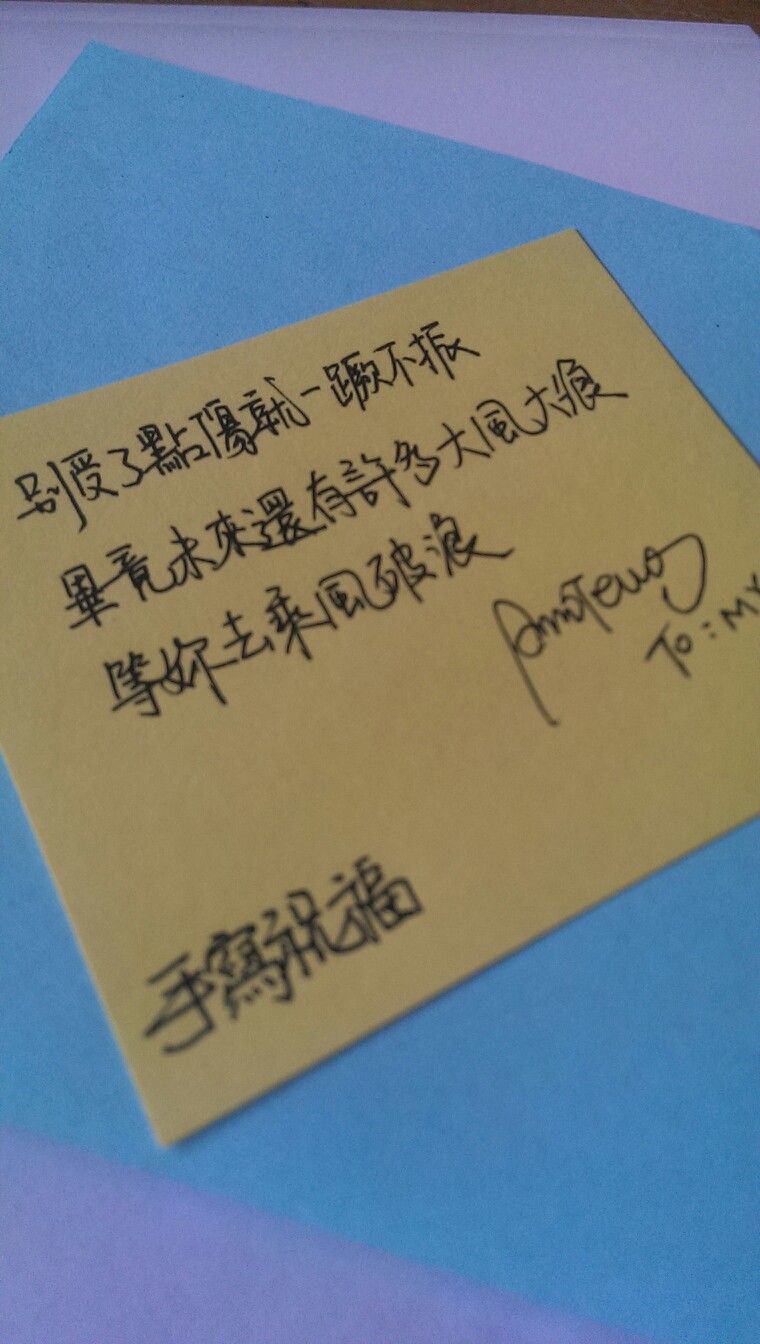 別受了點傷就一蹶不振
畢竟未來還有許多大風大痕
等妳去乘風破浪
TO:MY
手寫祝福